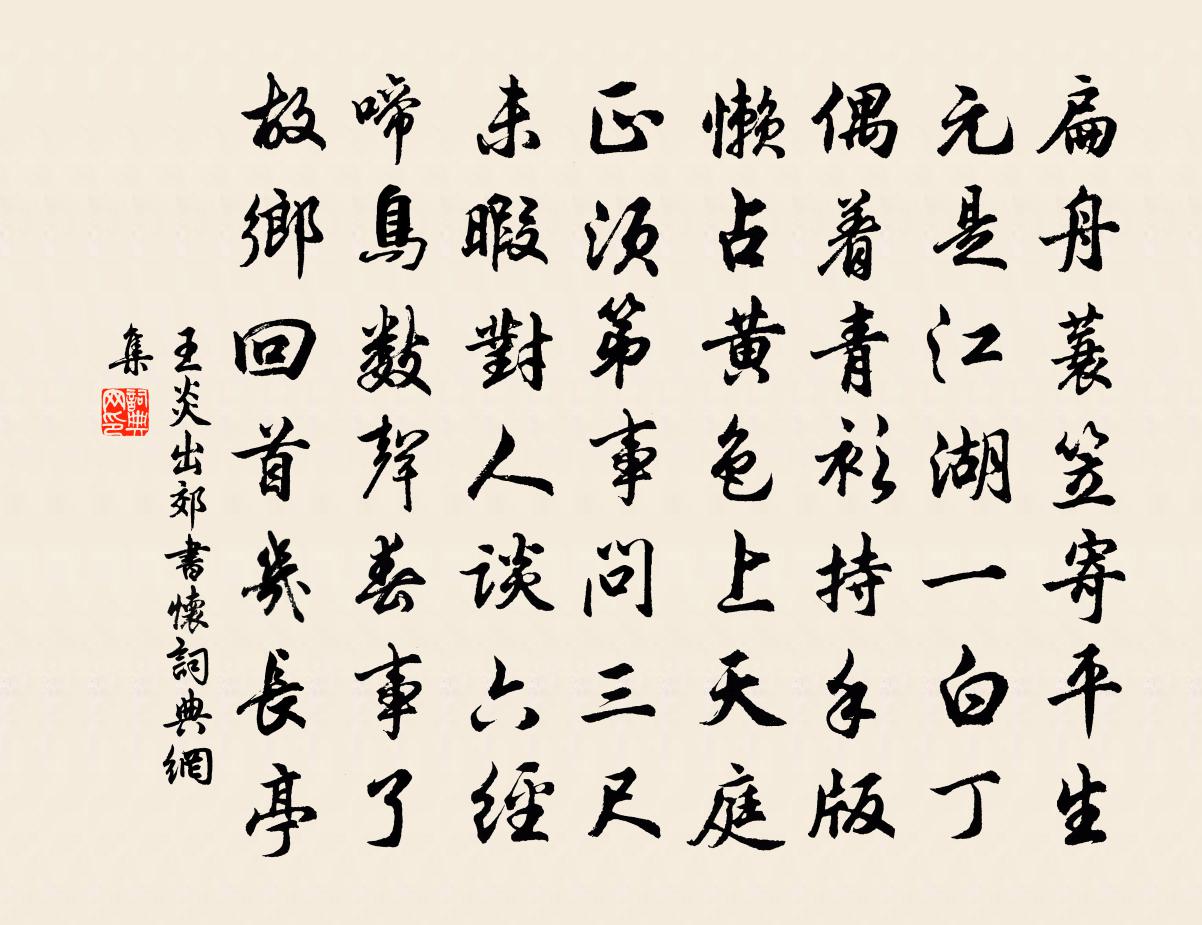 扁舟蓑笠寄平生
元是江湖一白丁
偶着青衫持手版
懒占黄色上天庭
正须第事问三尺
未暇對人谈六經
啼鳥數聲春事了
故鄉回首幾長亭
王炎出郊書懷詞典網
集
詞典
网印